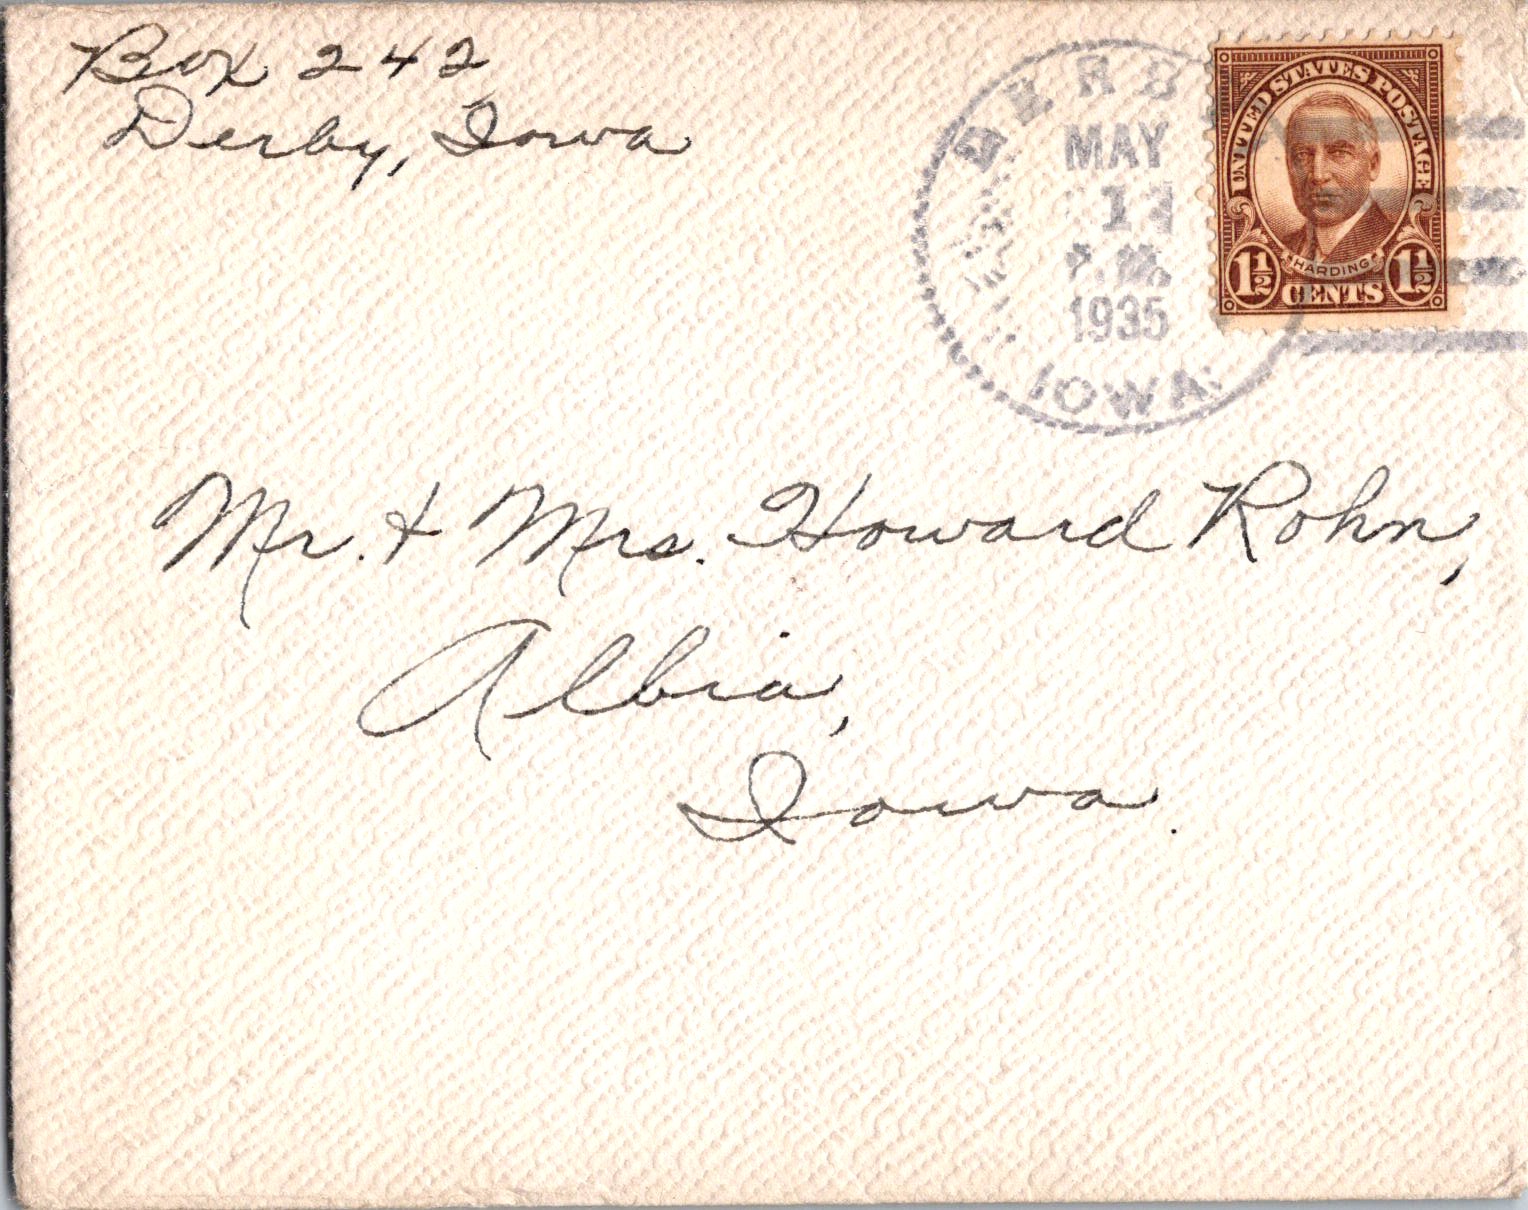 Box 242
Derby, Iowa
DERB
MAY
1935
IOWA.
UNITED STATES POSTAGE
HARDING
1½ CENTS 1½
Mr. & Mrs. Howard Rohn,
Albia,
Iowa.